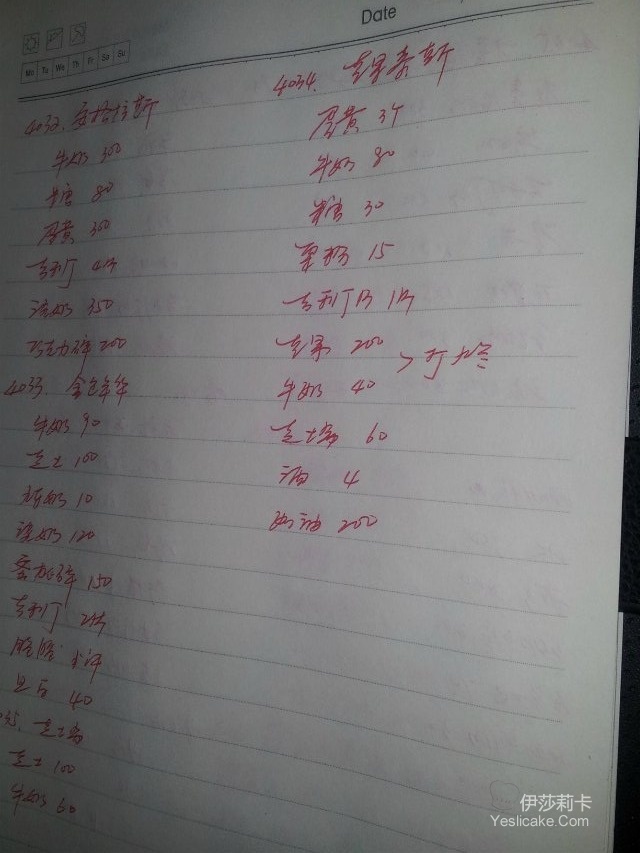 Date
Mo Tu We Th Fr Sa Su
4032.
牛奶 300
糖 80
蛋黄 300
吉利丁 4片
淡奶 350
巧克力碎 200
4033. 金色年华
牛奶 90
芝士 100
酸奶 10
淡奶 120
150
吉利丁 2片
40
芝士
芝士 100
牛奶 60
4034. 芒果慕斯
蛋黄 3个
牛奶 80
糖 30
粟粉 15
吉利丁片 1片
芒果 200
牛奶 40
> 打烂
芝士粉 60
酒 4
奶油 200
伊莎莉卡
Yeslicake.Com